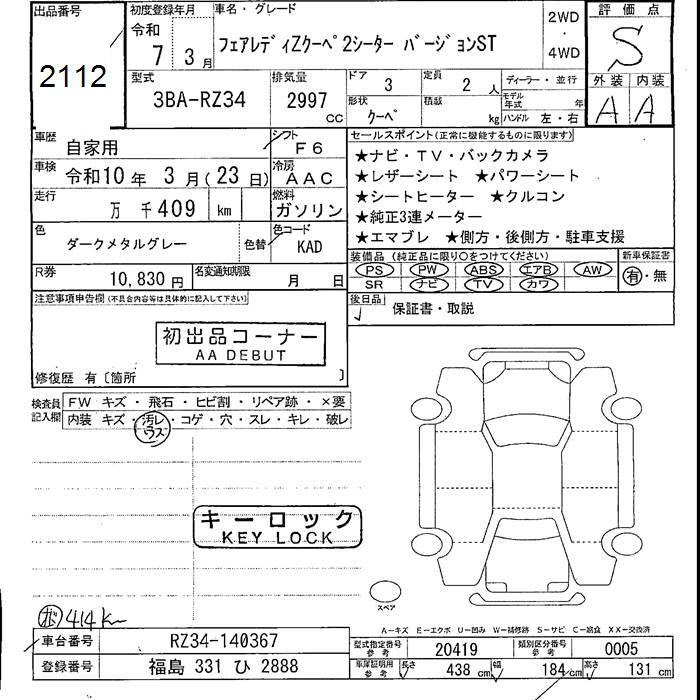 出品番号
2112
初度登録年月
令和
7 3 月
車名・グレード
フェアレディZクーペ 2シーター バージョンST
2WD
・
4WD
評価点
S
外装 内装
A A
型式
3BA-RZ34
排気量
2997
CC
ドア
3
定員
2 人
ディーラー・並行
モデル年式 年
形状
クーペ
積載
kg
ハンドル 左・右
車歴
自家用
シフト
F6
車検
令和10 年 3 月 ( 23 日)
冷房
AAC
走行
万 千409 km
燃料
ガソリン
色
ダークメタルグレー
色替
色コード
KAD
R券
10,830 円
名変通知期限
月 日
セールスポイント(正常に機能するものに限ります)
★ナビ・TV・バックカメラ
★レザーシート ★パワーシート
★シートヒーター ★クルコン
★純正3連メーター
★エマブレ ★側方・後側方・駐車支援
装備品 (純正品に限り○をつけてください)
PS PW ABS エアB AW
SR ナビ TV カワ
新車保証書
有・無
後日品
保証書・取説
注意事項申告欄 (不具合内容等は具体的に記入して下さい)
初出品コーナー
AA DEBUT
修復歴 有 〔箇所 〕
検査員
記入欄
FW キズ ・ 飛石 ・ ヒビ割 ・ リペア跡 ・ ×要
内装 キズ ・ 汚レ ・ コゲ ・ 穴 ・ スレ ・ キレ ・ 破レ
ウス
キーロック
KEY LOCK
スペア
414k
A―キズ E―エクボ U―凹み W―補修跡 S―サビ C―腐食 XX―交換済
車台番号
RZ34-140367
登録番号
福島 331 ひ 2888
型式指定番号
参考
20419
類別区分番号
参考
0005
車庫証明用
参考
長さ
438 cm
幅
184 cm
高さ
131 cm